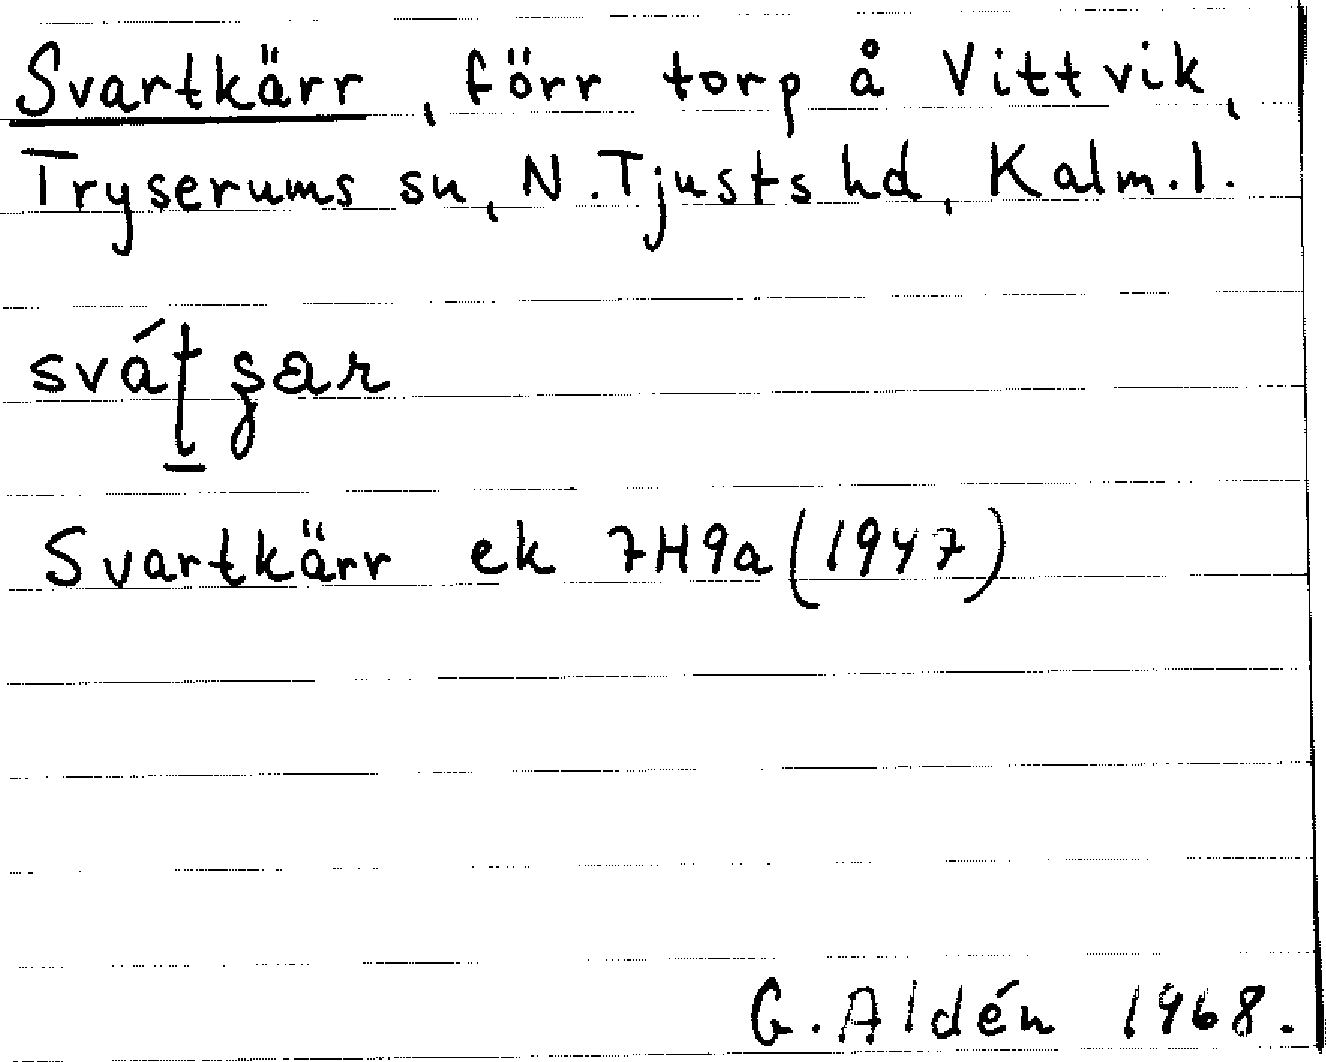 Svartkärr, förr torp å Vittvik,
Tryserums sn, N. Tjusts hd, Kalm. l.
Svartkärr ek 7H9a (1947)
G. Aldén 1968.